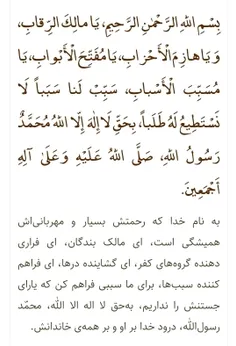 بِسْمِ اللهِ الرَّحْمٰنِ الرَّحیمِ، یَا مالِكَ الرِّقابِ،
وَ یَاهازِمَ الْأَحْزابِ، یَا مُفَتِّحَ الْأَبْوابِ، یَا
مُسَبِّبَ الْأَسْبابِ، سَبِّبْ لَنا سَبَباً لَا
نَسْتَطِیعُ لَهُ طَلَباً، بِحَقِّ لَا إِلٰهَ إِلَّا اللهُ مُحَمَّدٌ
رَسُولُ اللهِ، صَلَّی اللهُ عَلَیْهِ وَ عَلَیٰ آلِهِ
أَجْمَعِینَ.
به نام خدا که رحمتش بسیار و مهربانی‌اش
همیشگی است، ای مالک بندگان، ای فراری
دهنده گروه‌های کفر، ای گشاینده درها، ای فراهم
کننده سبب‌ها، برای ما سببی فراهم کن که یارای
جستنش را نداریم، به‌حق لا اله الا الله، محمّد
رسول‌الله، درود خدا بر او و بر همه‌ی خاندانش.